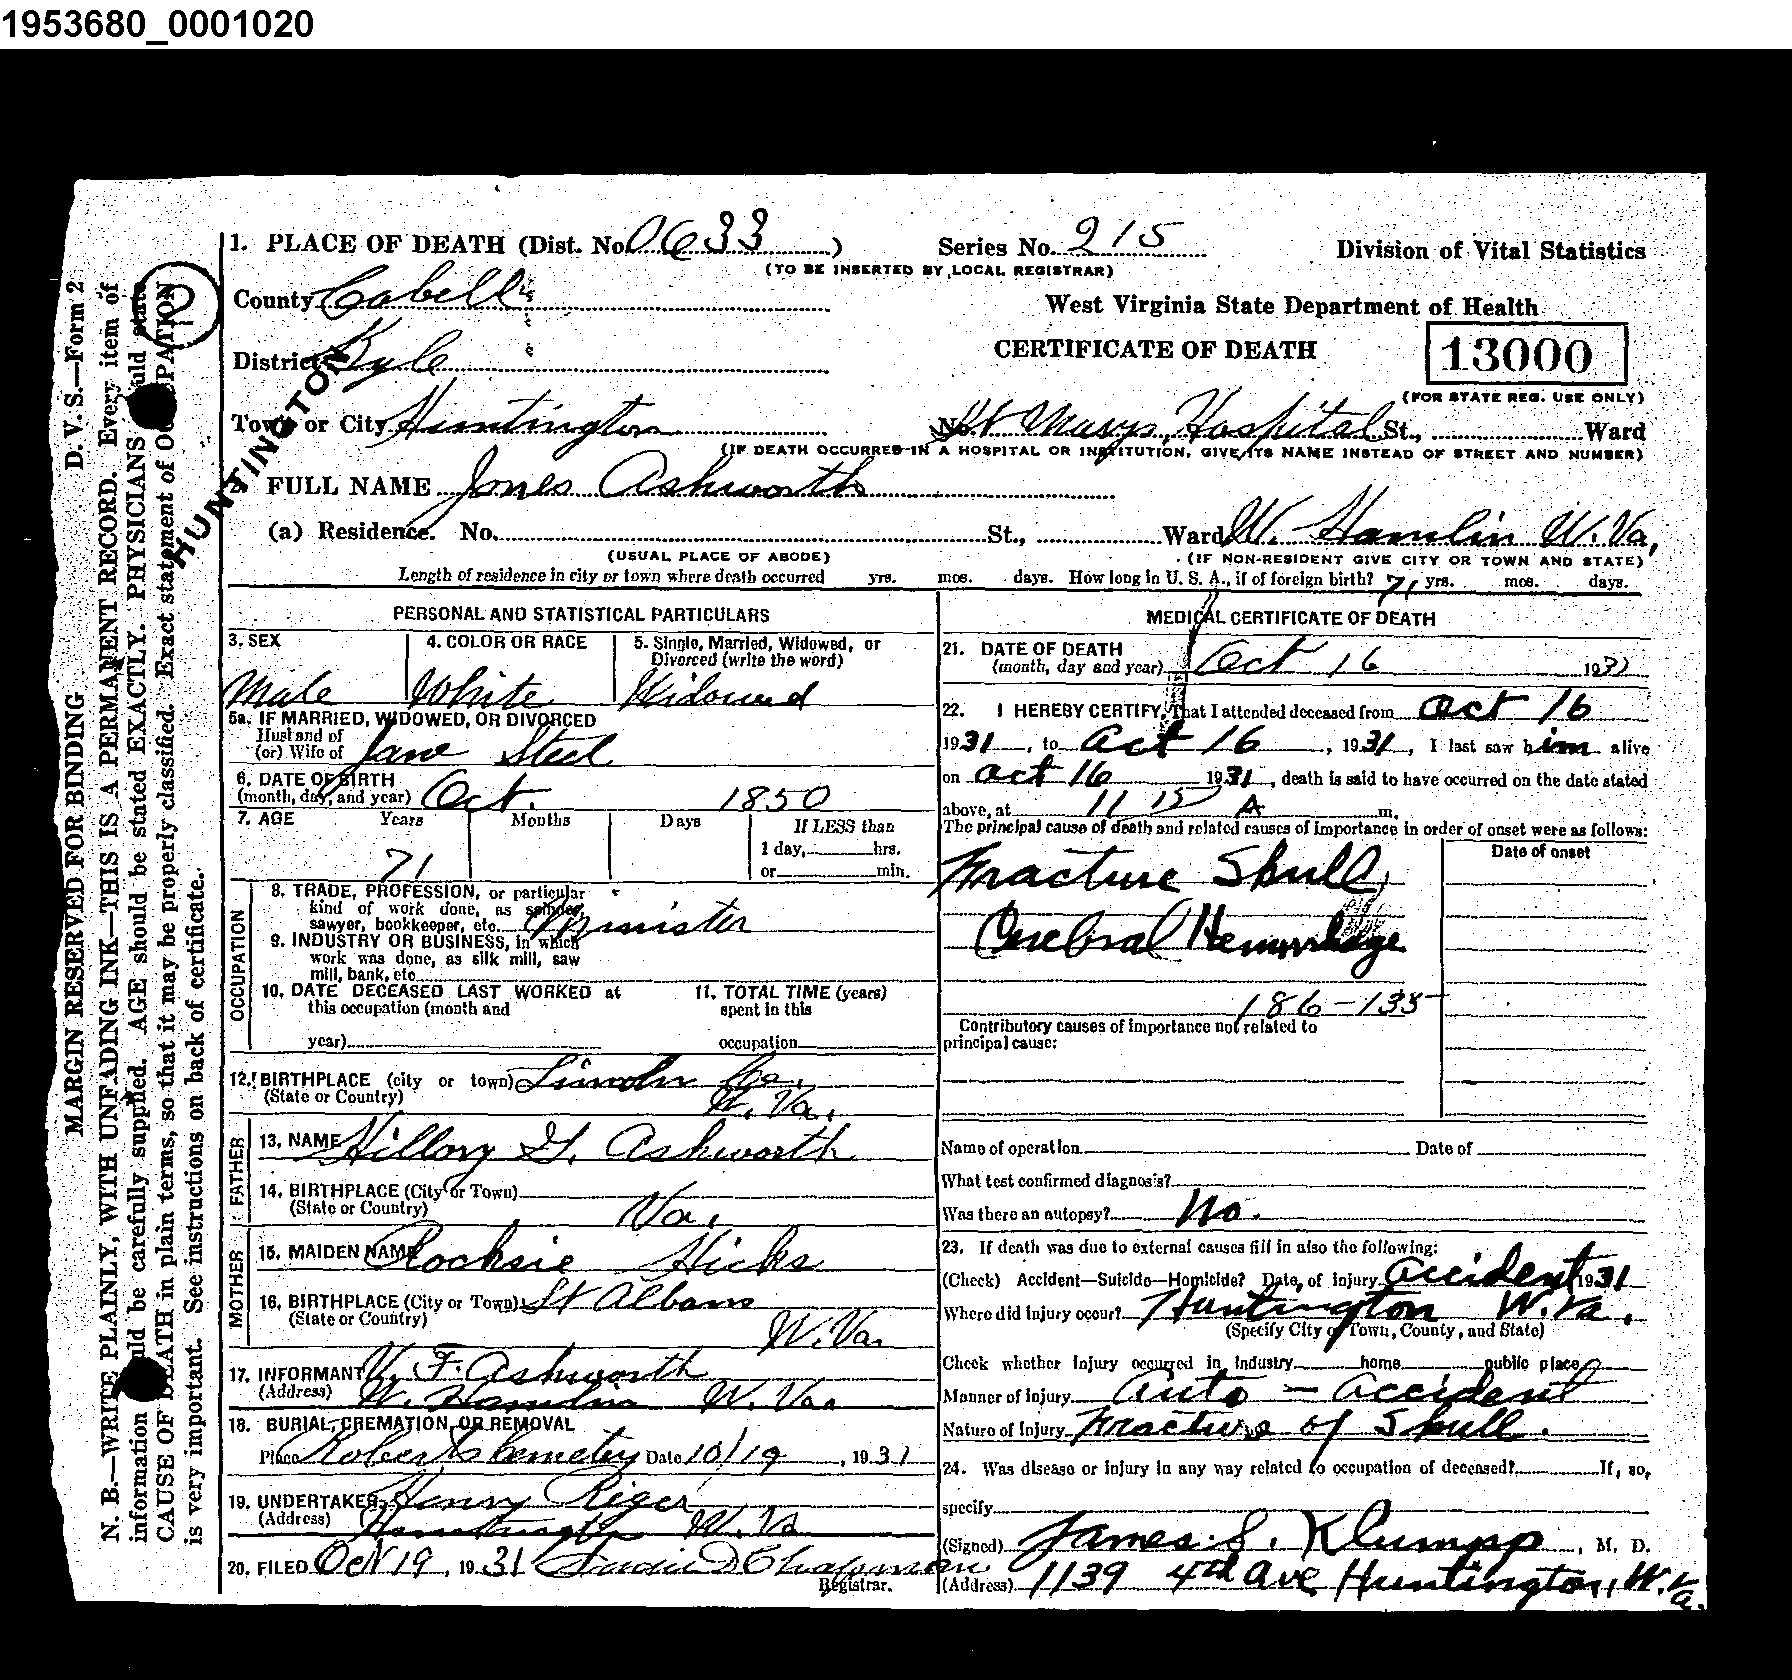 1953680_0001020
1. PLACE OF DEATH (Dist. No. 0633) Series No. 215 Division of Vital Statistics
(TO BE INSERTED BY LOCAL REGISTRAR)
County Cabell West Virginia State Department of Health
District Kyle CERTIFICATE OF DEATH 13000
(FOR STATE REG. USE ONLY)
Town or City Huntington No. St Marys Hospital St., Ward
(IF DEATH OCCURRED IN A HOSPITAL OR INSTITUTION, GIVE ITS NAME INSTEAD OF STREET AND NUMBER)
HUNTINGTON
FULL NAME Jones Ashworth
(a) Residence. No. St., Ward W. Hamlin W. Va,
(USUAL PLACE OF ABODE) (IF NON-RESIDENT GIVE CITY OR TOWN AND STATE)
Length of residence in city or town where death occurred yrs. mos. days. How long in U. S. A., if of foreign birth? 71 yrs. mos. days.
PERSONAL AND STATISTICAL PARTICULARS
3. SEX 4. COLOR OR RACE 5. Single, Married, Widowed, or
Divorced (write the word)
Male White Widowed
5a. IF MARRIED, WIDOWED, OR DIVORCED
Husband of
(or) Wife of Jane Steel
6. DATE OF BIRTH
(month, day, and year) Oct. 1850
7. AGE Years Months Days If LESS than
1 day, hrs.
71 or min.
OCCUPATION
8. TRADE, PROFESSION, or particular
kind of work done, as spinder,
sawyer, bookkeeper, etc. Minister
9. INDUSTRY OR BUSINESS, in which
work was done, as silk mill, saw
mill, bank, etc
10. DATE DECEASED LAST WORKED at 11. TOTAL TIME (years)
this occupation (month and spent in this
year) occupation
12. BIRTHPLACE (city or town) Lincoln Co.
(State or Country) W. Va.
FATHER
13. NAME Hillory G. Ashworth
14. BIRTHPLACE (City or Town)
(State or Country) Va.
MOTHER
15. MAIDEN NAME Rocksie Hicks
16. BIRTHPLACE (City or Town) St Albans
(State or Country) W. Va.
17. INFORMANT V. F. Ashworth
(Address) W. Hamlin W. Va.
18. BURIAL, CREMATION, OR REMOVAL
Place Roberts Cemetery Date 10/19, 1931
19. UNDERTAKER Henry Riger
(Address) Huntington W. Va
20. FILED Oct 19, 1931 Chapman
Registrar.
MEDICAL CERTIFICATE OF DEATH
21. DATE OF DEATH
(month, day and year) Oct 16 1931
22. I HEREBY CERTIFY, That I attended deceased from Oct 16
1931, to Oct 16, 1931, I last saw him alive
on Oct 16 1931, death is said to have occurred on the date stated
above, at 11 15 A m.
The principal cause of death and related causes of importance in order of onset were as follows:
Date of onset
Fracture Skull
Cerebral Hemorrhage
186-135
Contributory causes of importance not related to
principal cause:
Name of operation Date of
What test confirmed diagnosis?
Was there an autopsy? No.
23. If death was due to external causes fill in also the following:
(Check) Accident—Suicide—Homicide? Date of injury Accident 1931
Where did injury occur? Huntington W. Va.
(Specify City or Town, County, and State)
Check whether injury occurred in industry home public place
Manner of injury Auto - Accident
Nature of injury Fracture of Skull.
24. Was disease or injury in any way related to occupation of deceased? If, so,
specify
(Signed) James S. Klumpp, M. D.
(Address) 1139 4th Ave Huntington, W. Va.
D. V. S.—Form 2
MARGIN RESERVED FOR BINDING
N. B.—WRITE PLAINLY, WITH UNFADING INK—THIS IS A PERMANENT RECORD. Every item of
information should be carefully supplied. AGE should be stated EXACTLY. PHYSICIANS should state
CAUSE OF DEATH in plain terms, so that it may be properly classified. Exact statement of OCCUPATION
is very important. See instructions on back of certificate.